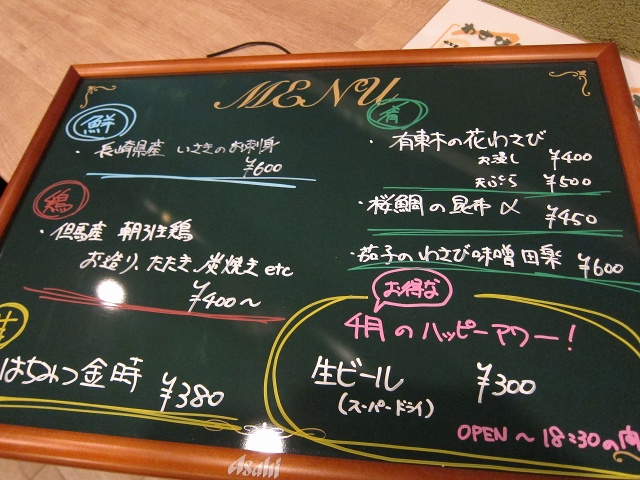 MENU
鮮
・長崎県産 いさきのお刺身
¥600
鶏
・但馬産 朝引き鶏
お造り、たたき、炭焼き etc
¥400～
はちみつ金時
¥380
肴
・有東木の花わさび
お浸し ¥400
天ぷら ¥500
・桜鯛の昆布〆 ¥450
・茄子のわさび味噌田楽 ¥600
お得な
4月のハッピーアワー!
生ビール ¥300
(スーパードライ)
OPEN～18:30の間
Asahi